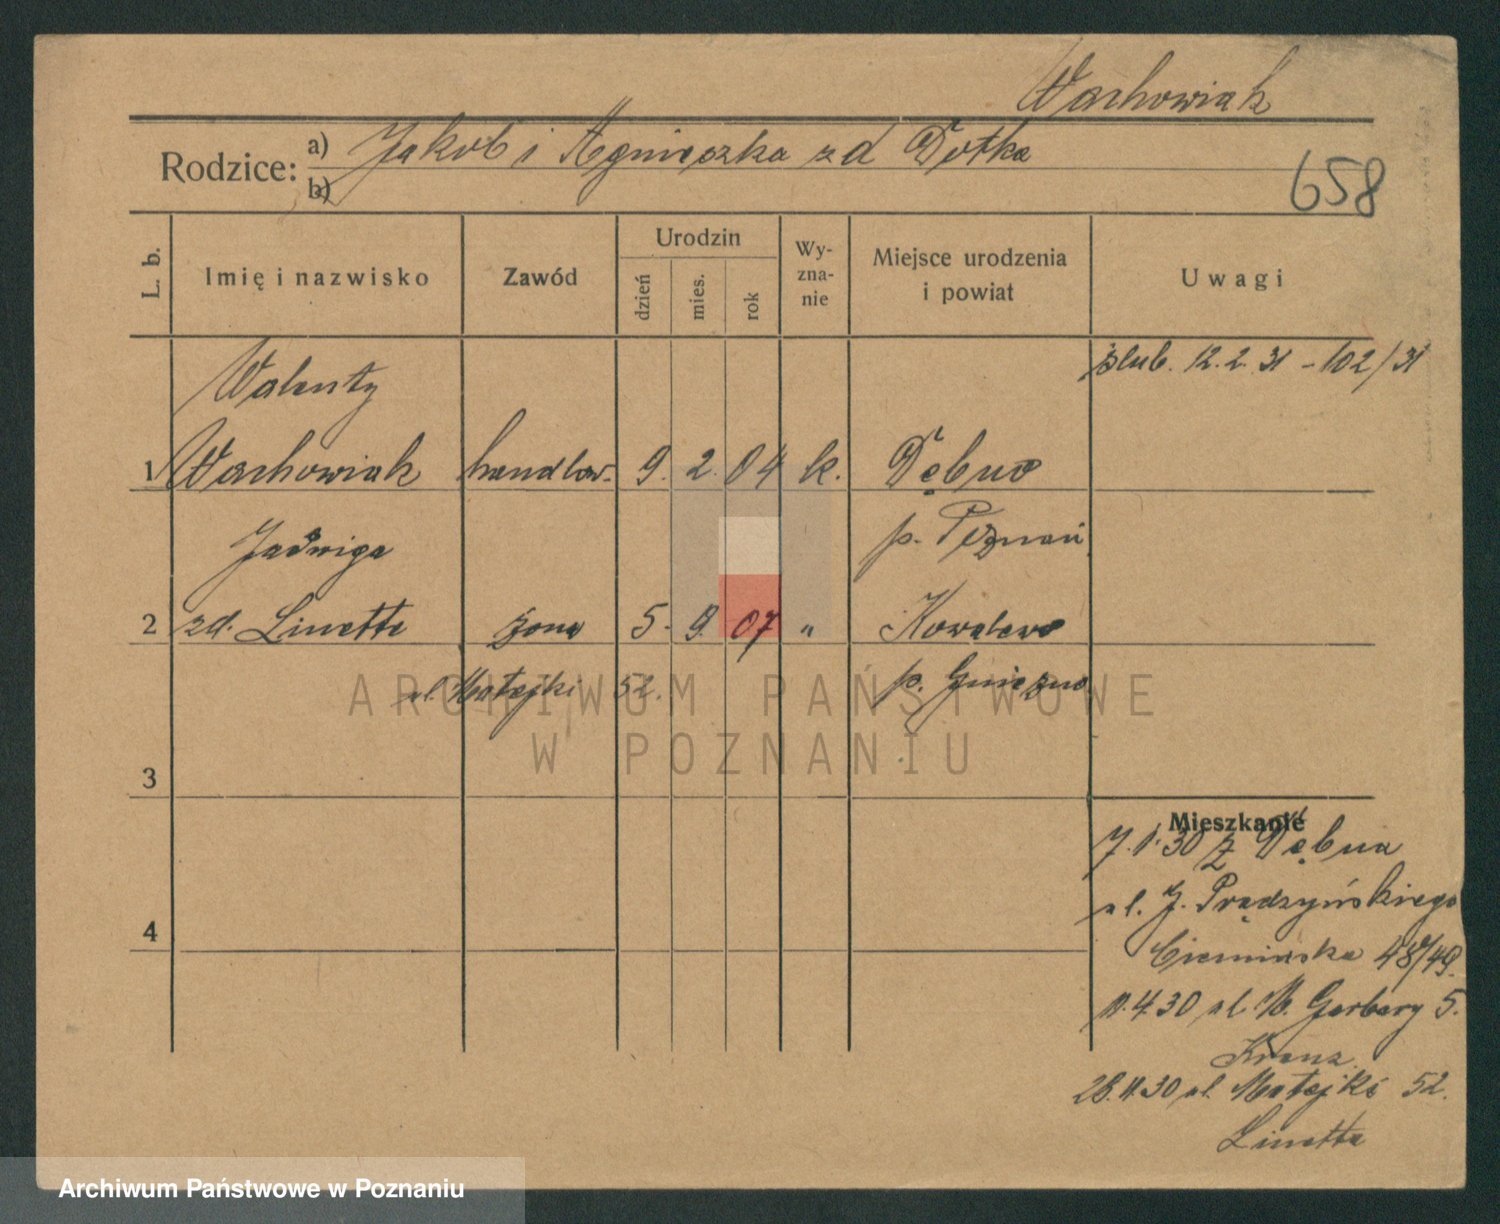 Wachowiak
Rodzice: a) Jakob i Agnieszka zd Dotka
b)
658
L. b. Imię i nazwisko Zawód Urodzin dzień mies. rok Wy-zna-nie Miejsce urodzenia i powiat Uwagi
ślub. 12.2.31 - 102/31
Walenty
1 Wachowiak handlow. 9. 2. 04 k. Dębno
Jadwiga p. Poznań
2 zd. Linette żona 5. 9. 07 " Kowalewo
ul. Matejki 52. p. Gniezno
ARCHIWUM PAŃSTWOWE
W POZNANIU
3
Mieszkanie
7.1.30 z Dębna
4
ul. J. Prądzyńskiego
48/49.
11.4.30 ul. W. Garbary 5.
28.11.30 ul. Matejki 52.
Linette
Archiwum Państwowe w Poznaniu